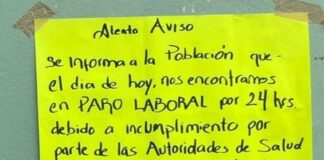 Atento AVISO
se Informa a la Población que-
el dia de hoy, nos encontramos
en PARO LABORAL por 24 hrs.
debido a incumplimiento por
parte de las Autoridades de Salud